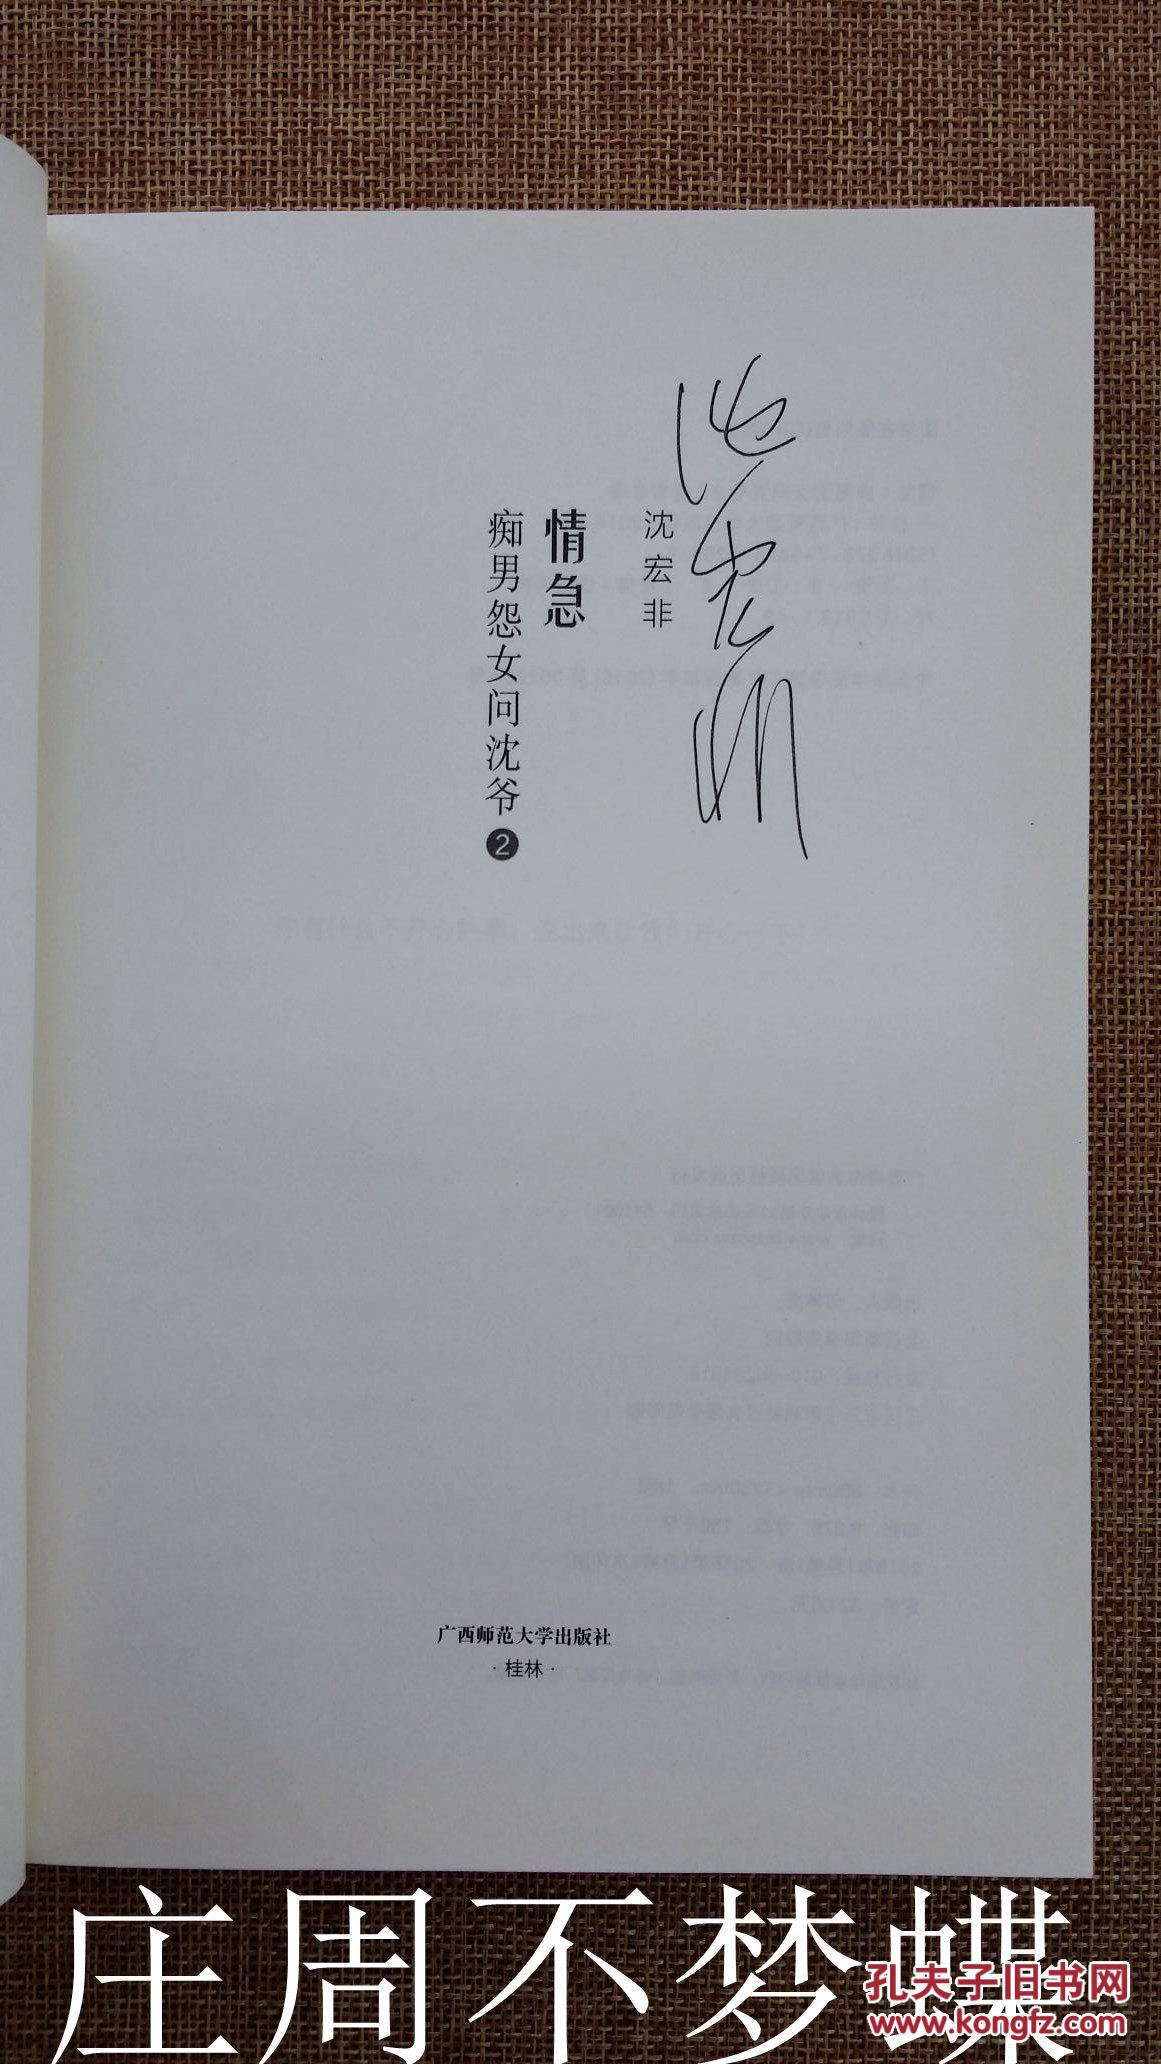 沈宏非
沈宏非
情急
痴男怨女问沈爷2
广西师范大学出版社
·桂林·
庄周不梦蝶
孔夫子旧书网
www.kongfz.com